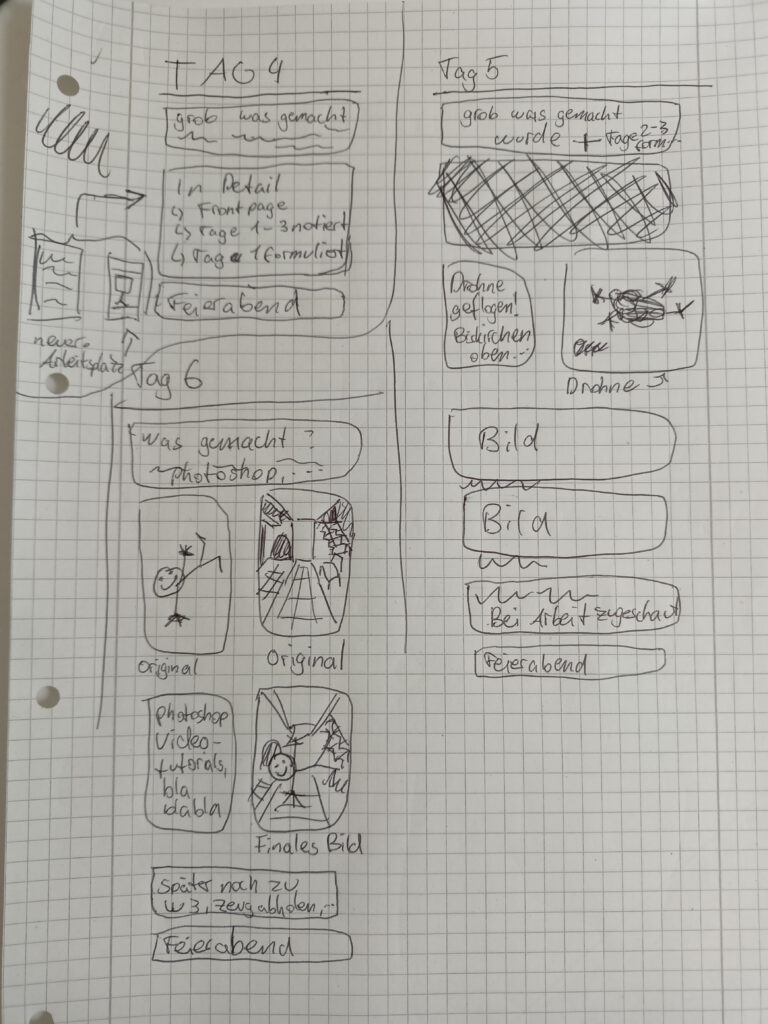 TAG 4
grob was gemacht
In Detail
↳ Frontpage
↳ Tage 1-3 notiert
↳ Tag 1 formuliert
Feierabend
neuer
Arbeitsplatz
Tag 5
grob was gemacht
wurde + Tage 2-3
form.
Drohne
geflogen!
Biskirchen
oben...
Drohne
Bild
Bild
Bei Arbeit zugeschaut
Feierabend
Tag 6
Was gemacht?
photoshop, ...
Original
Original
photoshop
video-
tutorials,
bla
blabla
Finales Bild
Später noch zu
W3, Zeug abholen, ...
Feierabend